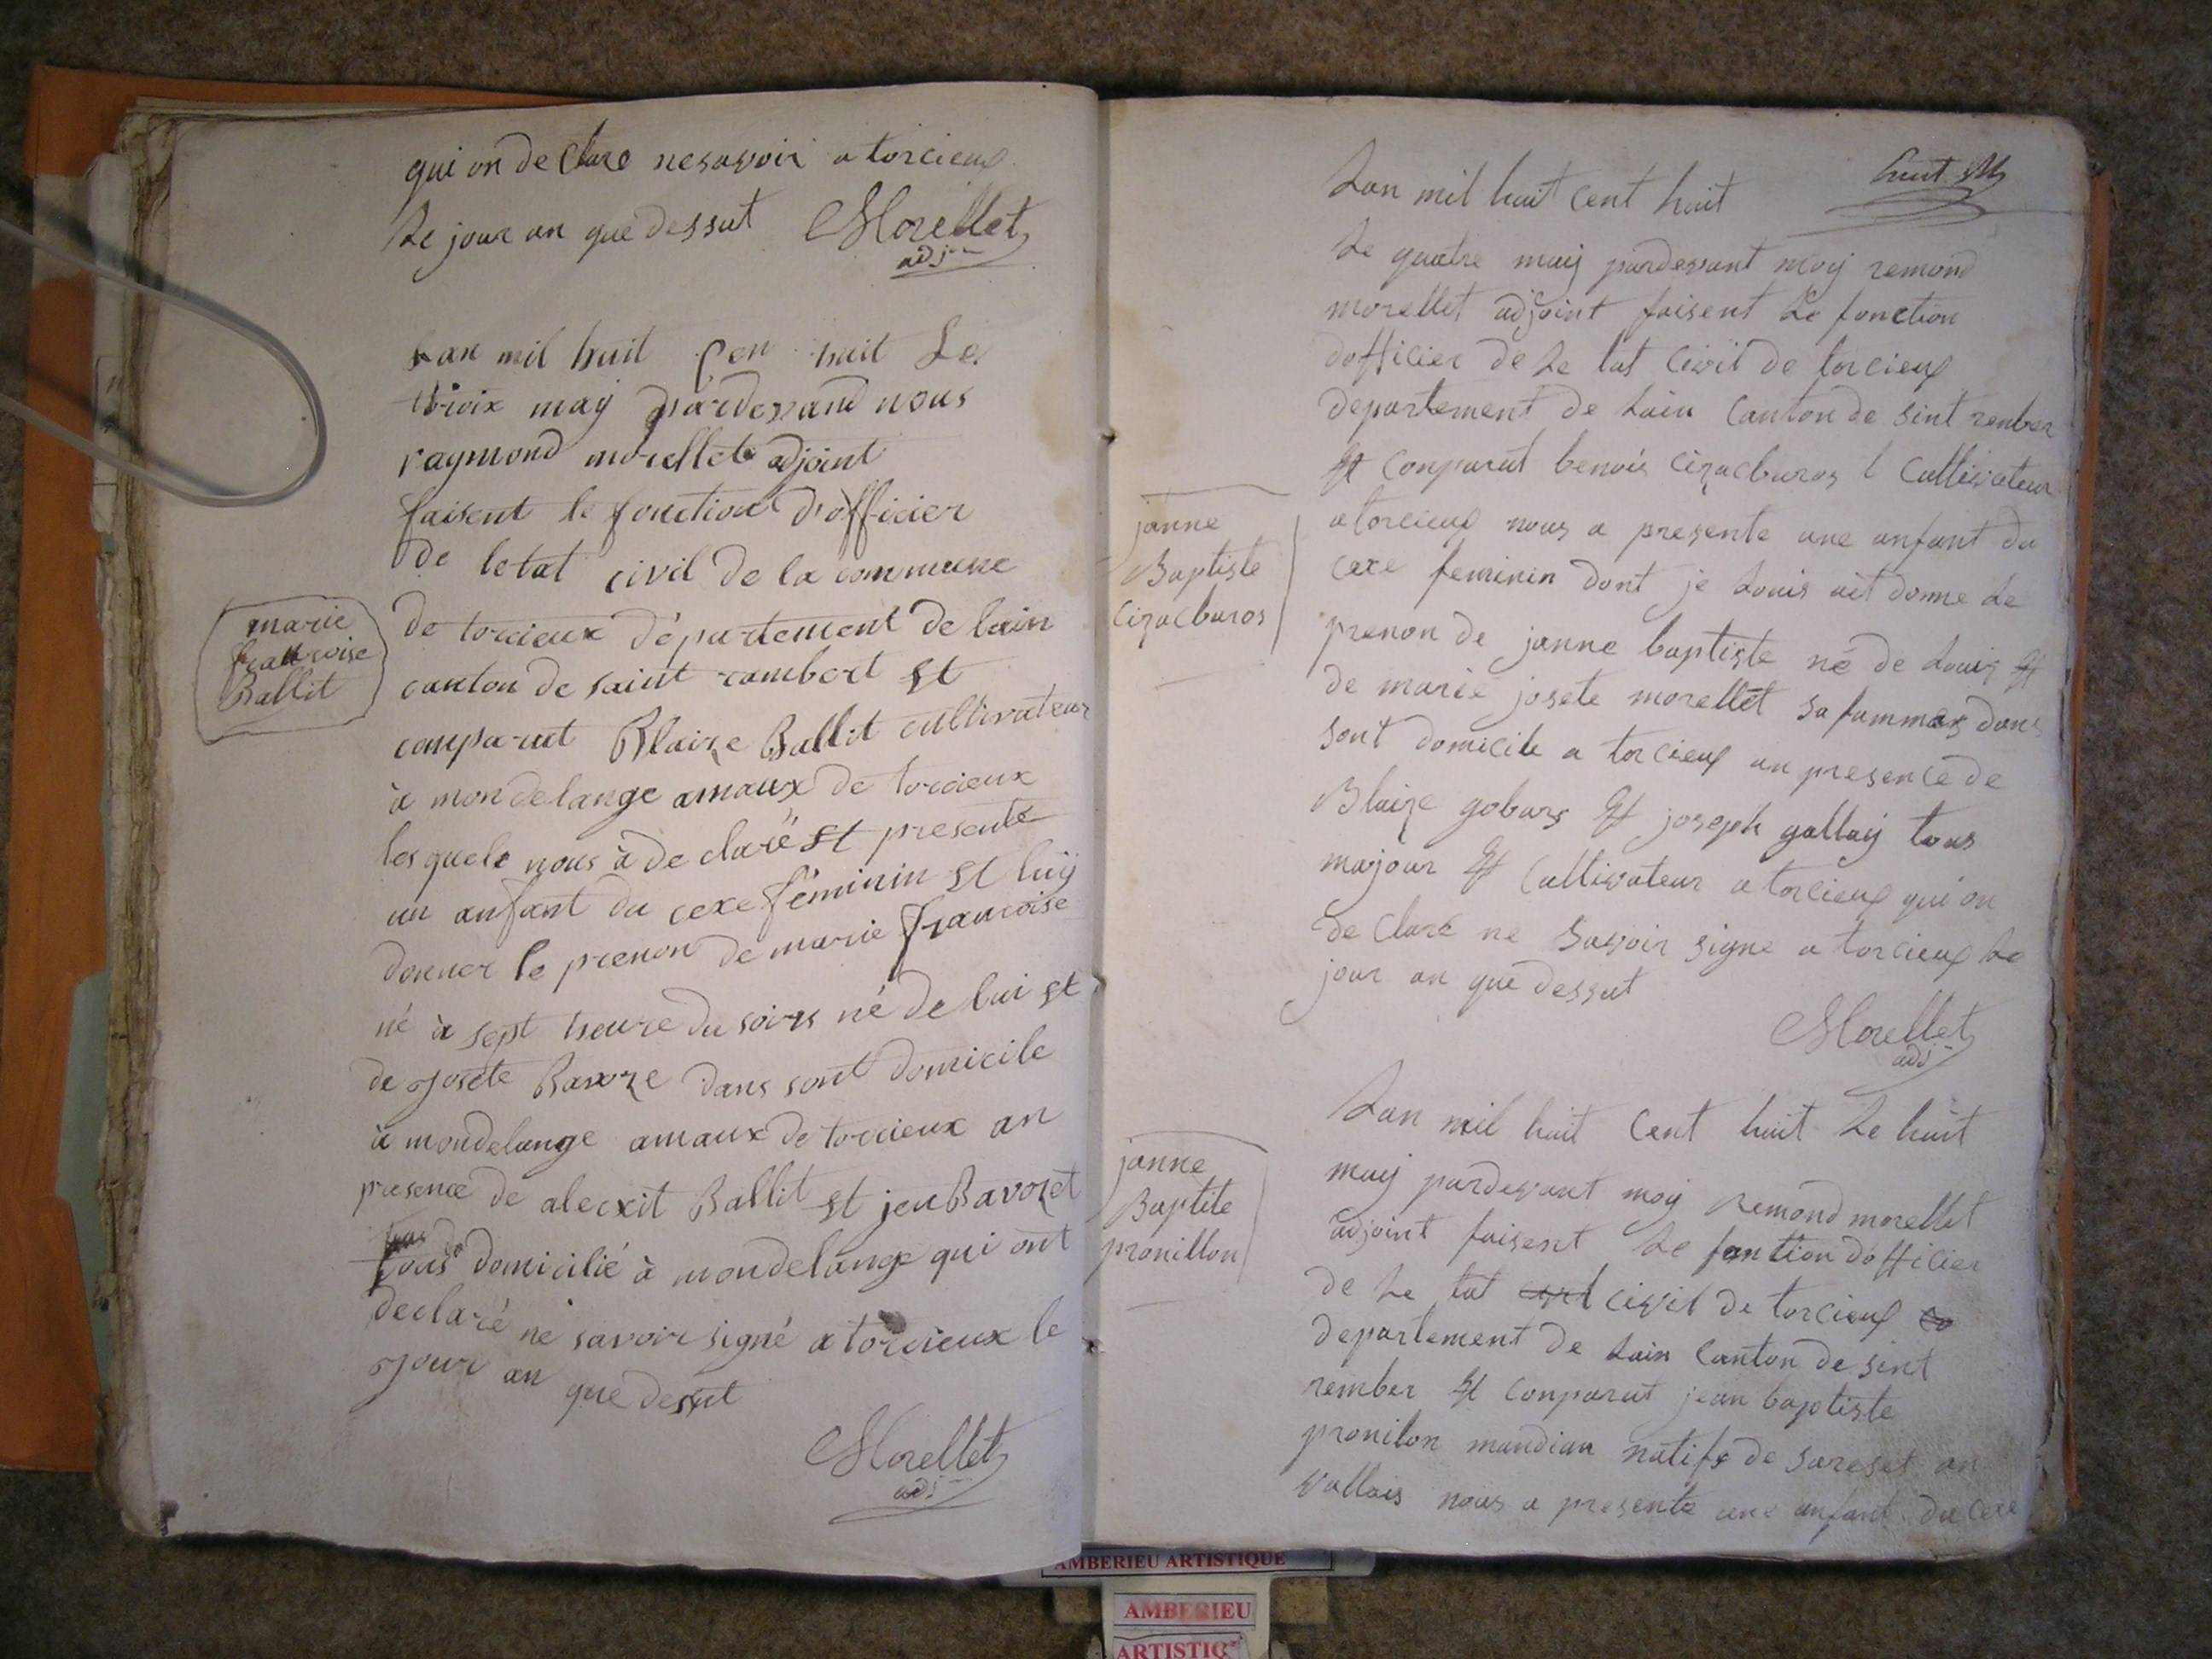 qui on de clare ne savoir a torcieux
Le jour an que dessut Morellet
adj
Lan mil huit cen huit Le
troix may pardevand nous
raymond morellet adjoint
faisent le fonction d'officier
de letat civil de la commune
de torcieux département de lain
canton de saint rambert et
comparut Blaize Ballit cultivateur
à mondelange amaux de torcieux
les quele nous à de claré et presenté
un anfant du cexe féminin et luy
donner le prenon de marie françoise
né à sept heure du soirs né de lui et
de josete Bavoze dans sont domicile
à mondelange amaux de torcieux an
presence de alecxit Ballit et jean Bavozet
tous domicilié à mondelange qui ont
declaré ne savoir signé a torcieux le
jour an que dessut
Morellet
adj
marie
francoise
Ballit
huit
Lan mil huit cent huit
Le quatre may pardevant moy remond
morellet adjoint faisent Le fonction
dofficier de Le tat civil de torcieux
departement de Lain Canton de sint renber
et conparut benois cizacburos l cultivateur
a torcieux nous a presente une anfant du
cexe feminin dont je Louis ait donne Le
prenon de janne baptiste né de Louis et
de marie josete morellet sa fammes dans
sont domicile a torcieux an presence de
Blaize gobars et joseph gallay tous
majour et Cultivateur a torcieux qui on
de Clare ne savoir signe a torcieux Le
jour an que dessut
Morellet
adj
janne
Baptiste
Cizacburos
Lan mil huit Cent huit Le huit
may pardevant moy Remond morellet
adjoint faisent Le fontion dofficier
de Le tat civil de torcieux
departement de Lain Canton de sint
rember et conparut jean baptiste
pronilon mandian natifs de sareset an
vallais nous a presente une anfant du cexe
janne
Baptite
pronillon
AMBERIEU ARTISTIQUE
AMBERIEU
ARTISTIQ